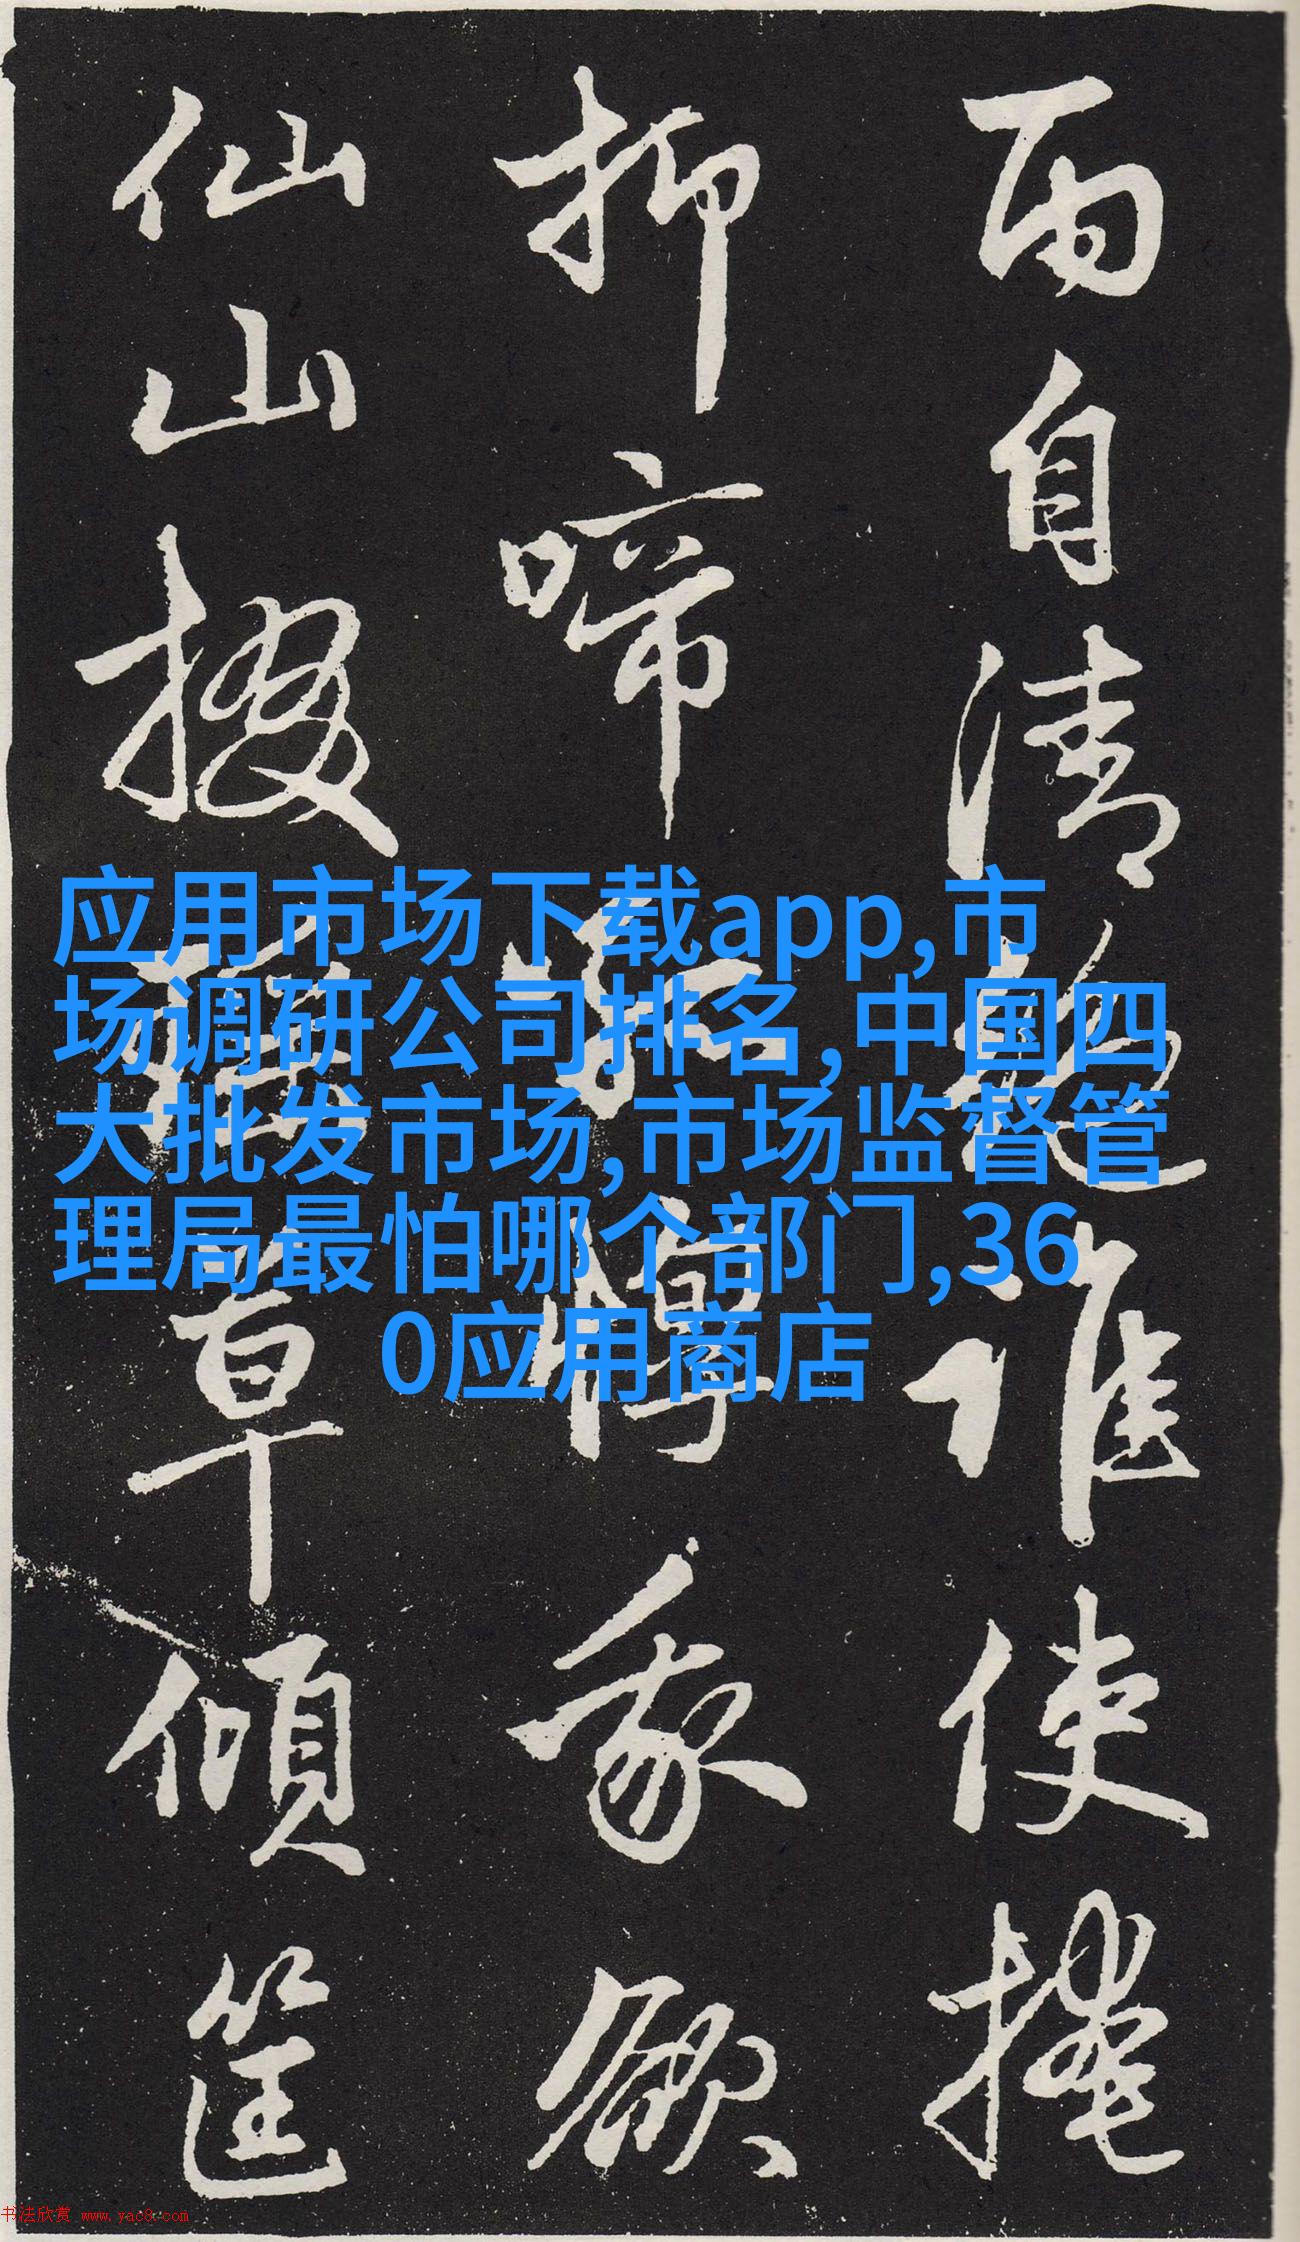 而自清越誰使掩
抑啼孤惸我欲
仙山掇瑤草傾筐
应用市场下载app,市
场调研公司排名,中国四
大批发市场,市场监督管
理局最怕哪个部门,36
0应用商店
书法欣赏 www.yac8.com